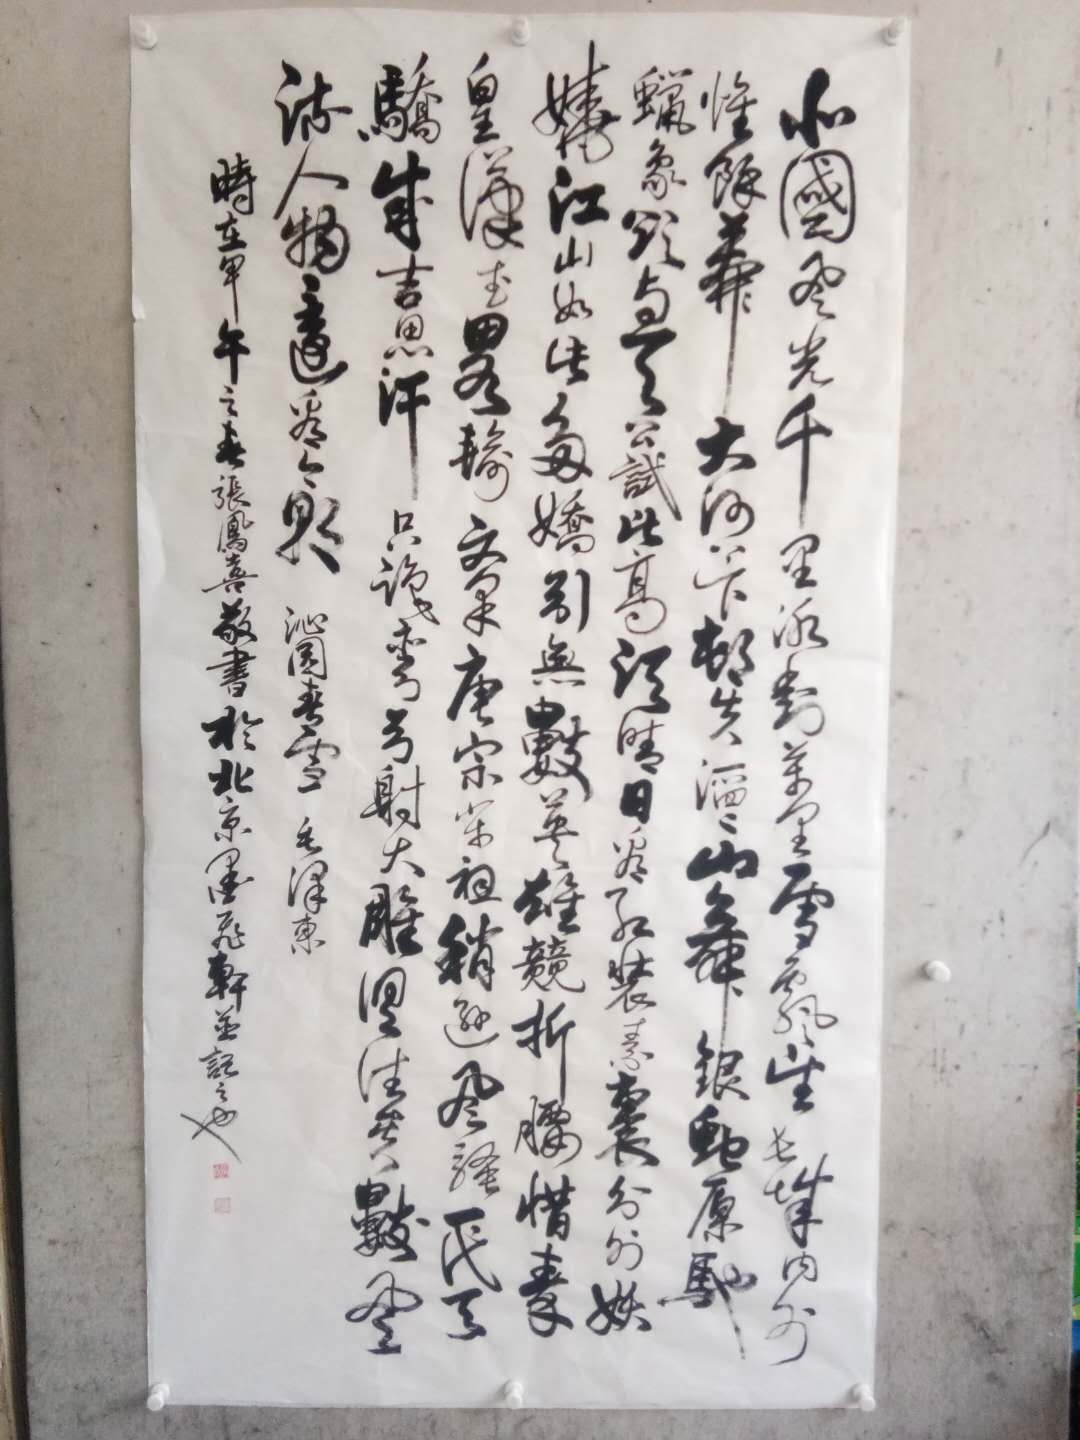 北國風光千里冰封萬里雪飄望長城內外
惟餘莽〻大河上下頓失滔〻山舞銀蛇原馳
蠟象欲與天公試比高須晴日看紅裝素裹分外妖
嬈江山如此多嬌引無數英雄競折腰惜秦
皇漢武畧輸文采唐宗宋祖稍遜風騷一代天
驕成吉思汗只識彎弓射大雕俱往矣數風
流人物還看今朝 沁園春雪 毛澤東
時在甲午之春張鳳喜敬書於北京墨飛軒並記之也